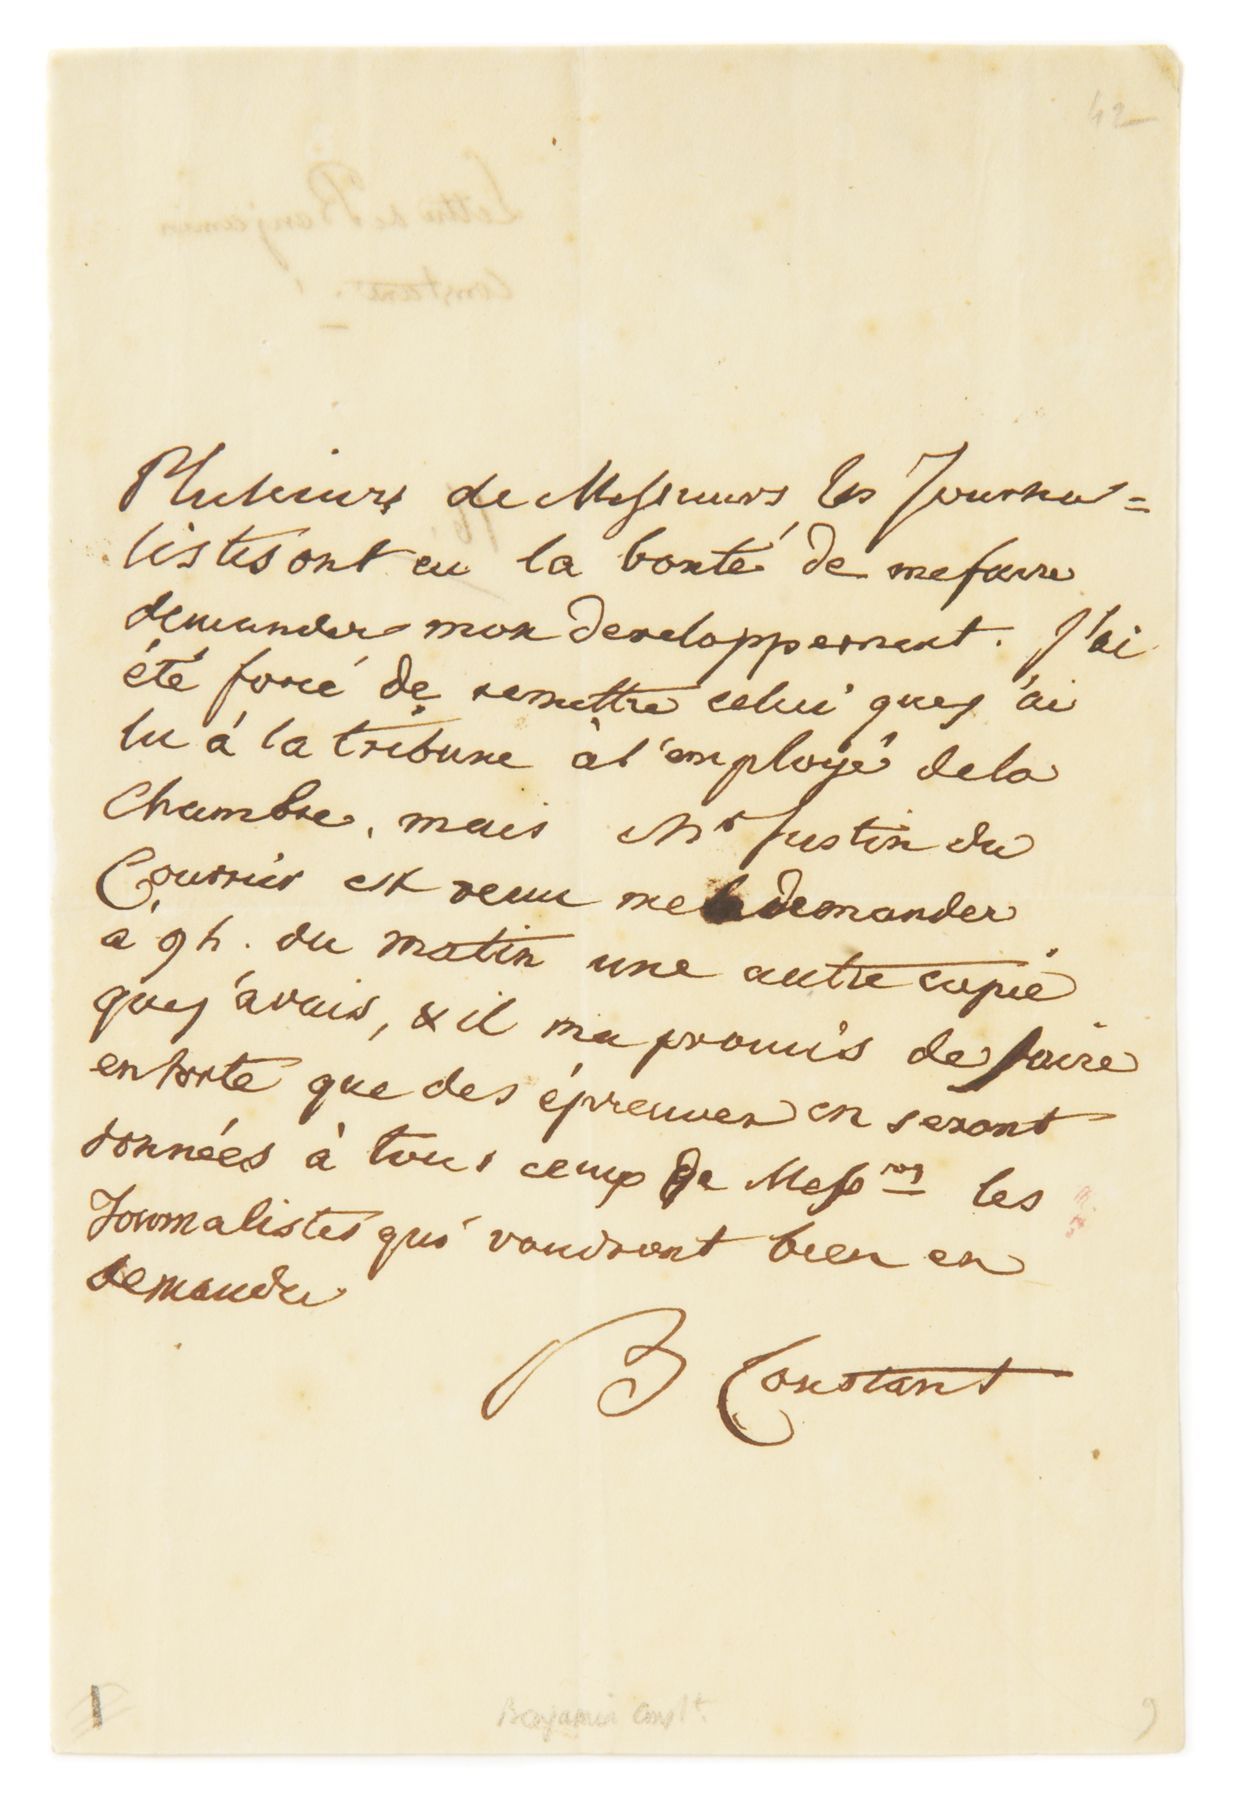 42
Lettre de Benjamin
Constant.
Plusieurs de Messieurs les Journa=
listes ont eu la bonté de me faire
demander mon developpement. J'ai
été forcé de remettre celui que j'ai
lu à la tribune à l'employé de la
Chambre, mais Mr Justin du
Courrier est venu me demander
à 9 h. du matin une autre copie
que j'avais, & il m'a promis de faire
ensorte que des épreuves en seront
données à tous ceux de Messrs les
Journalistes qui voudront bien en
demander
B Constant
Benjamin Const.
9